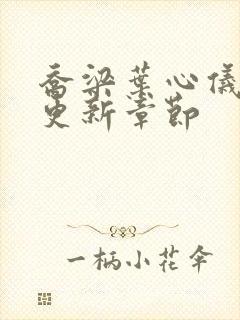 乔梁叶心仪
更新章节
一柄小花伞